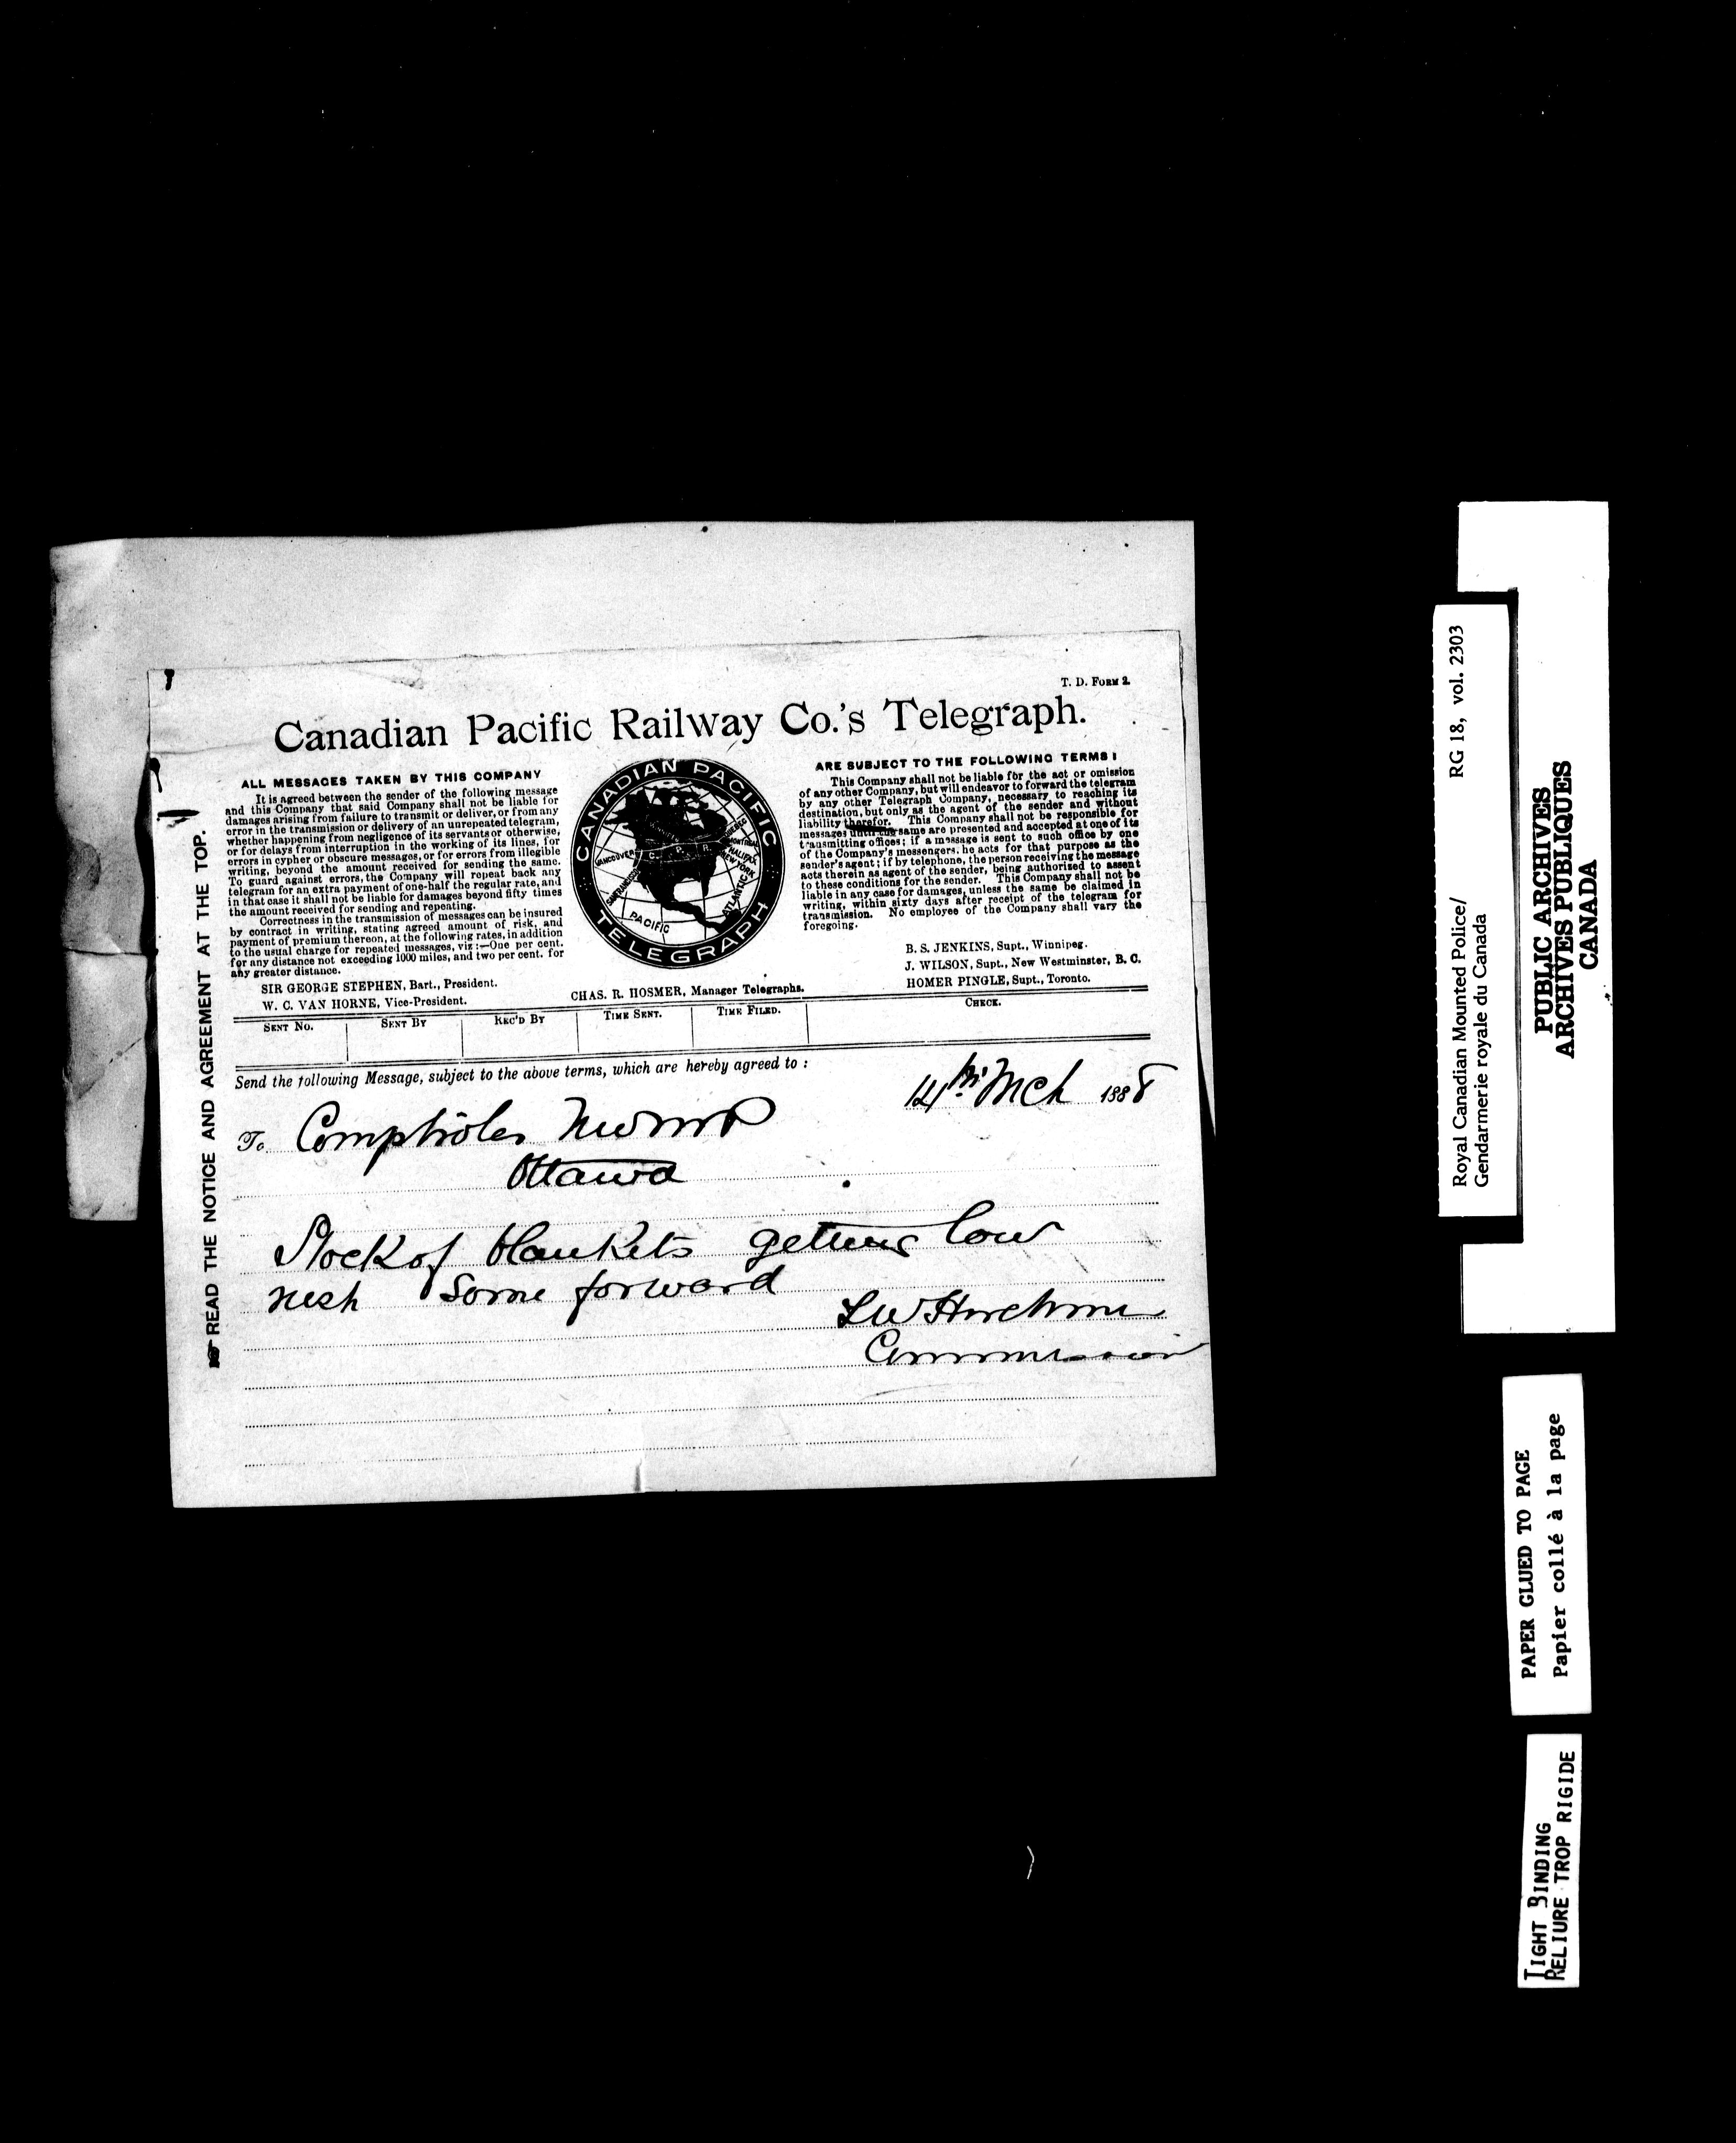 T. D. FORM 2.
Canadian Pacific Railway Co.'s Telegraph.
ALL MESSAGES TAKEN BY THIS COMPANY
It is agreed between the sender of the following message
and this Company that said Company shall not be liable for
damages arising from failure to transmit or deliver, or from any
error in the transmission or delivery of an unrepeated telegram,
whether happening from negligence of its servants or otherwise,
or for delays from interruption in the working of its lines, for
errors in cypher or obscure messages, or for errors from illegible
writing, beyond the amount received for sending the same.
To guard against errors, the Company will repeat back any
telegram for an extra payment of one-half the regular rate, and
in that case it shall not be liable for damages beyond fifty times
the amount received for sending and repeating.
Correctness in the transmission of messages can be insured
by contract in writing, stating agreed amount of risk, and
payment of premium thereon, at the following rates, in addition
to the usual charge for repeated messages, viz :—One per cent.
for any distance not exceeding 1000 miles, and two per cent. for
any greater distance.
SIR GEORGE STEPHEN, Bart., President.
W. C. VAN HORNE, Vice-President.
CANADIAN PACIFIC
TELEGRAPH
VANCOUVER
C. P. R.
QUEBEC
MONTREAL
HALIFAX
NEW YORK
SAN FRANCISCO
ATLANTIC
PACIFIC
CHAS. R. HOSMER, Manager Telegraphs.
ARE SUBJECT TO THE FOLLOWING TERMS :
This Company shall not be liable for the act or omission
of any other Company, but will endeavor to forward the telegram
by any other Telegraph Company, necessary to reaching its
destination, but only as the agent of the sender and without
liability therefor. This Company shall not be responsible for
messages until the same are presented and accepted at one of its
transmitting offices; if a message is sent to such office by one
of the Company's messengers, he acts for that purpose as the
sender's agent; if by telephone, the person receiving the message
acts therein as agent of the sender, being authorised to assent
to these conditions for the sender. This Company shall not be
liable in any case for damages, unless the same be claimed in
writing, within sixty days after receipt of the telegram for
transmission. No employee of the Company shall vary the
foregoing.
B. S. JENKINS, Supt., Winnipeg.
J. WILSON, Supt., New Westminster, B. C.
HOMER PINGLE, Supt., Toronto.
SENT NO. SENT BY REC'D BY TIME SENT. TIME FILED. CHECK.
Send the following Message, subject to the above terms, which are hereby agreed to :
14th Mch 1888
To Comptroler NWMP
Ottawa
Stock of blankets getting low
rush some forward
LW Herchmer
Commissioner
READ THE NOTICE AND AGREEMENT AT THE TOP.
Royal Canadian Mounted Police/ RG 18, vol. 2303
Gendarmerie royale du Canada
PUBLIC ARCHIVES
ARCHIVES PUBLIQUES
CANADA
PAPER GLUED TO PAGE
Papier collé à la page
TIGHT BINDING
RELIURE TROP RIGIDE